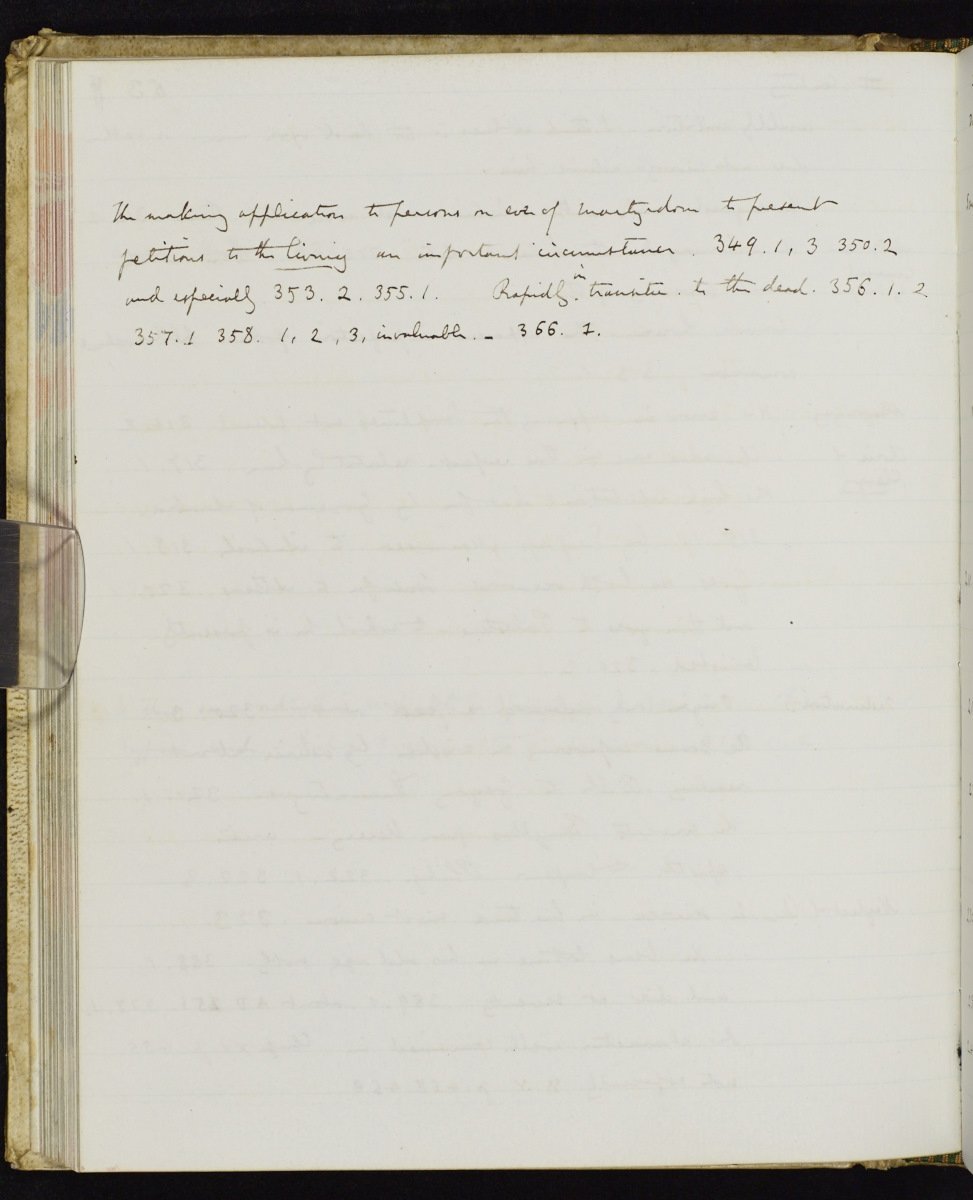 The making application to persons on eve of martyrdom to present
petitions to the living an important circumstance. 349.1, 3 350.2
and especially 353. 2. 355. 1. Rapidly in transitu. to the dead. 356. 1. 2
357.1 358. 1, 2, 3, invaluable. – 366. 1.